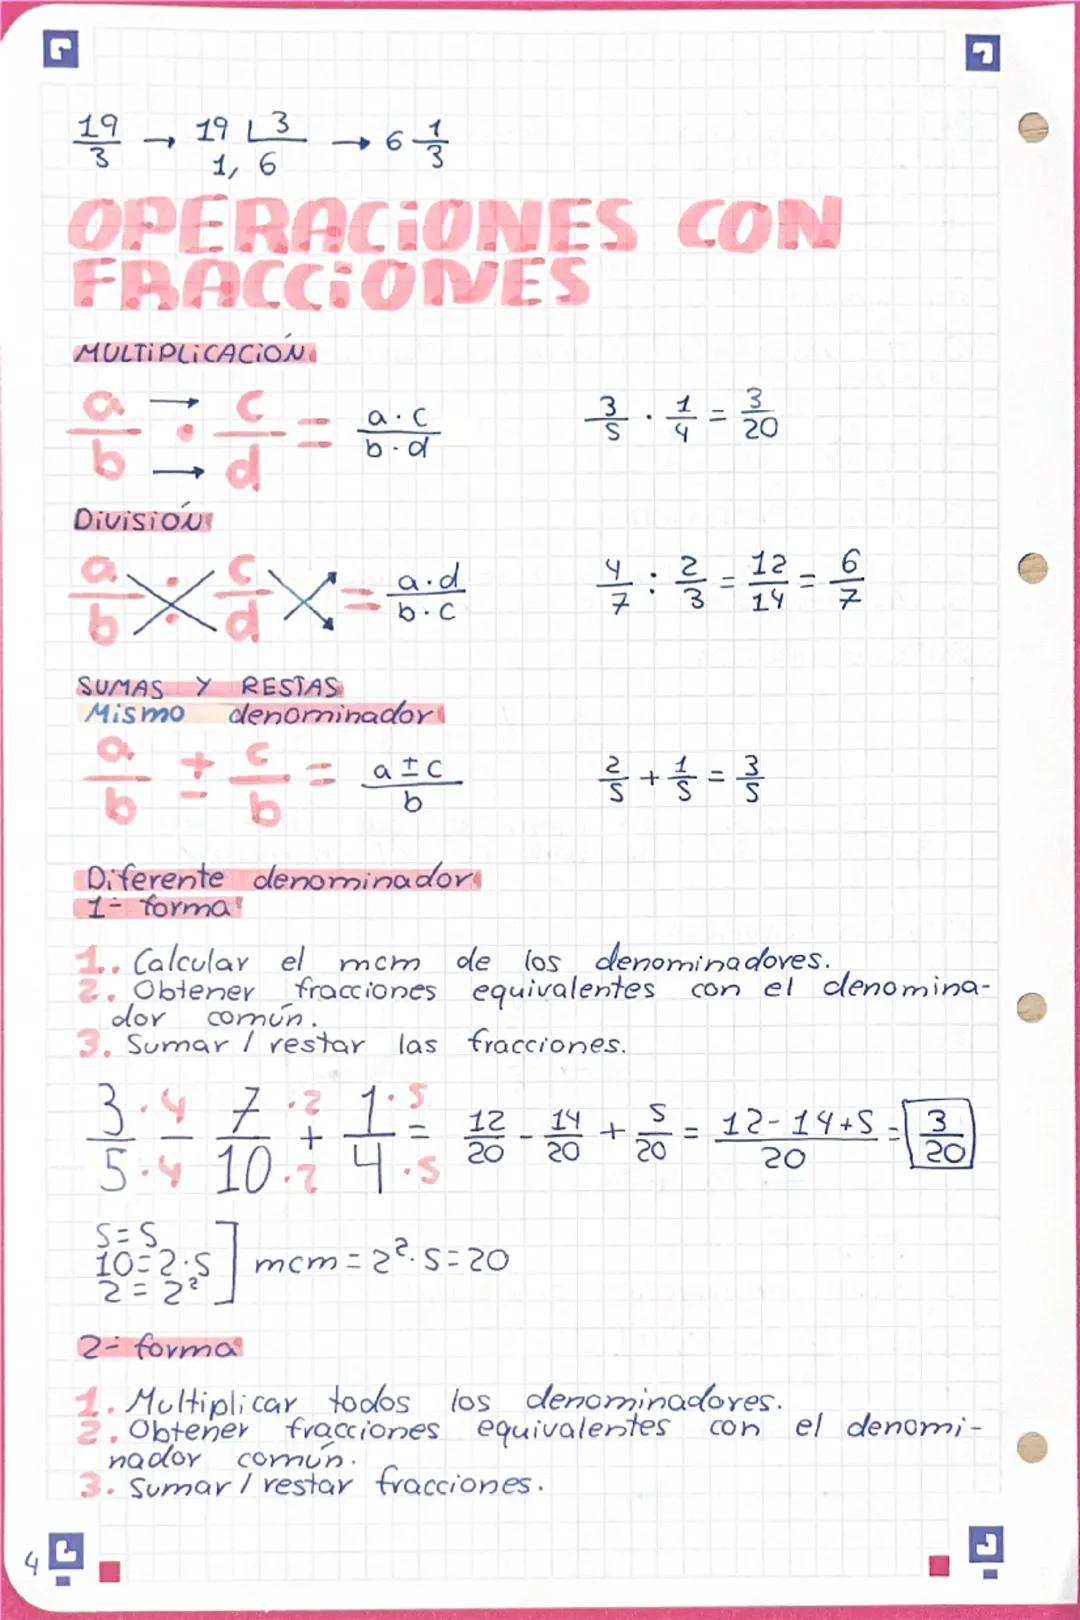 19/3 → 19 | 3 → 6 1/3
1, 6
OPERACiONES CON
FRACCiONES
MULTiPLiCACiÓN
a/b · c/d = a·c/b·d 3/5 · 1/4 = 3/20
DivisiÓN
a/b ÷ c/d = a·d/b·c 4/7 : 2/3 = 12/14 = 6/7
SUMAS Y RESTAS
Mismo denominador
a/b ± c/b = a±c/b 2/5 + 1/5 = 3/5
Diferente denominador
1ª forma
1. Calcular el mcm de los denominadores.
2. Obtener fracciones equivalentes con el denomina-
dor común.
3. Sumar / restar las fracciones.
3·4/5·4 - 7·2/10·2 + 1·5/4·5 = 12/20 - 14/20 + 5/20 = 12-14+5/20 = 3/20
5=5
10=2·5 ] mcm = 2²·5=20
2 = 2²
2ª forma
1. Multiplicar todos los denominadores.
2. Obtener fracciones equivalentes con el denomi-
nador común.
3. Sumar / restar fracciones.
4